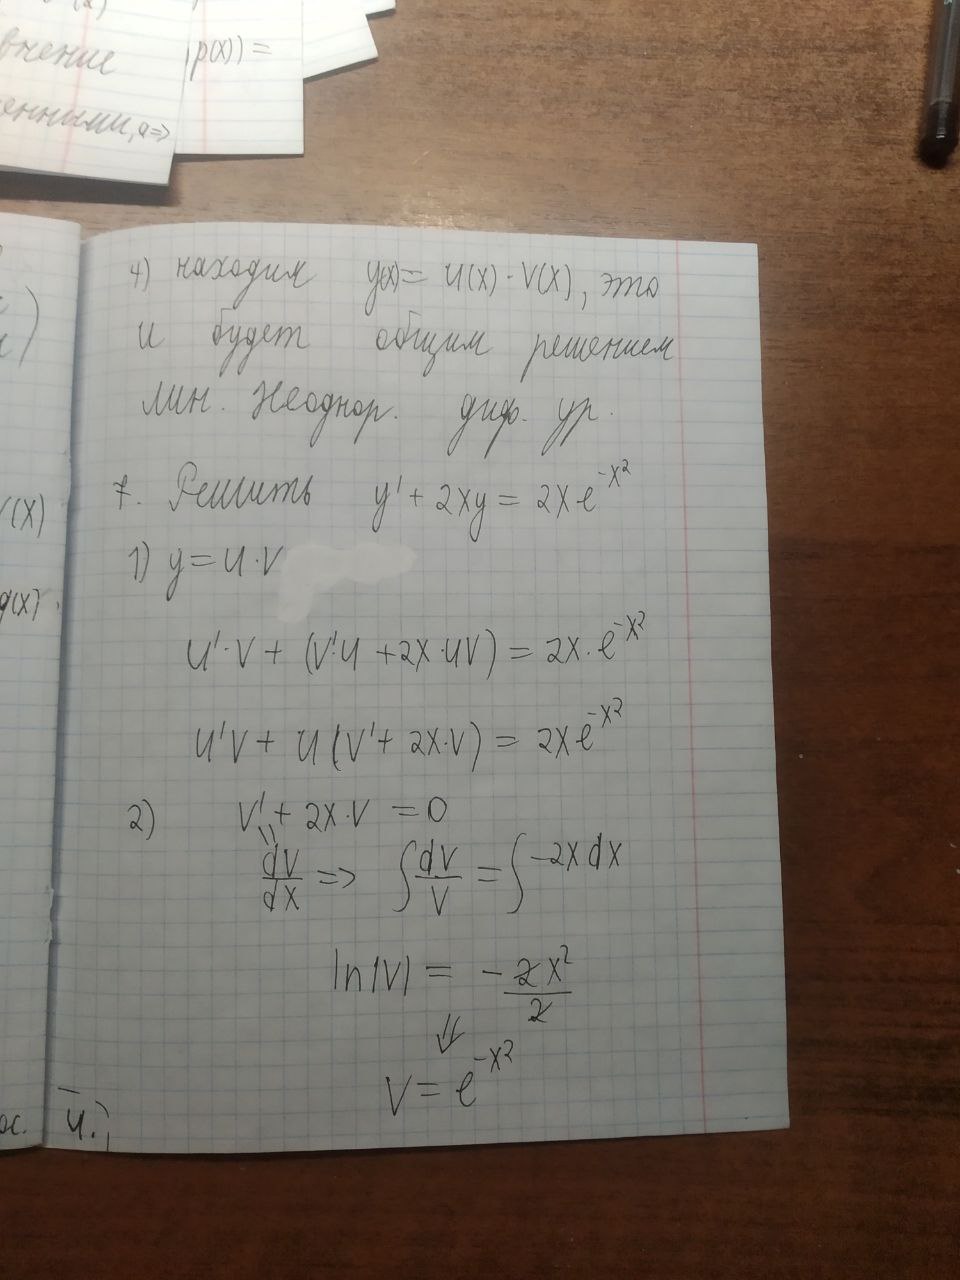 внение
p(x)) =
енными, a =>
4) находим y(x) = u(x) · v(x), это
и будет общим решением
лин. неоднор. диф. ур.
7. Решить y' + 2xy = 2x e^{-x^2}
1) y = u · v
u' · v + (v'u + 2x · uv) = 2x · e^{-x^2}
u'v + u (v' + 2x · v) = 2x e^{-x^2}
2) v' + 2x · v = 0
dv/dx => ∫ dv/v = ∫ -2x dx
ln|v| = - 2x^2/2
⇓
v = e^{-x^2}
v(x)
g(x).